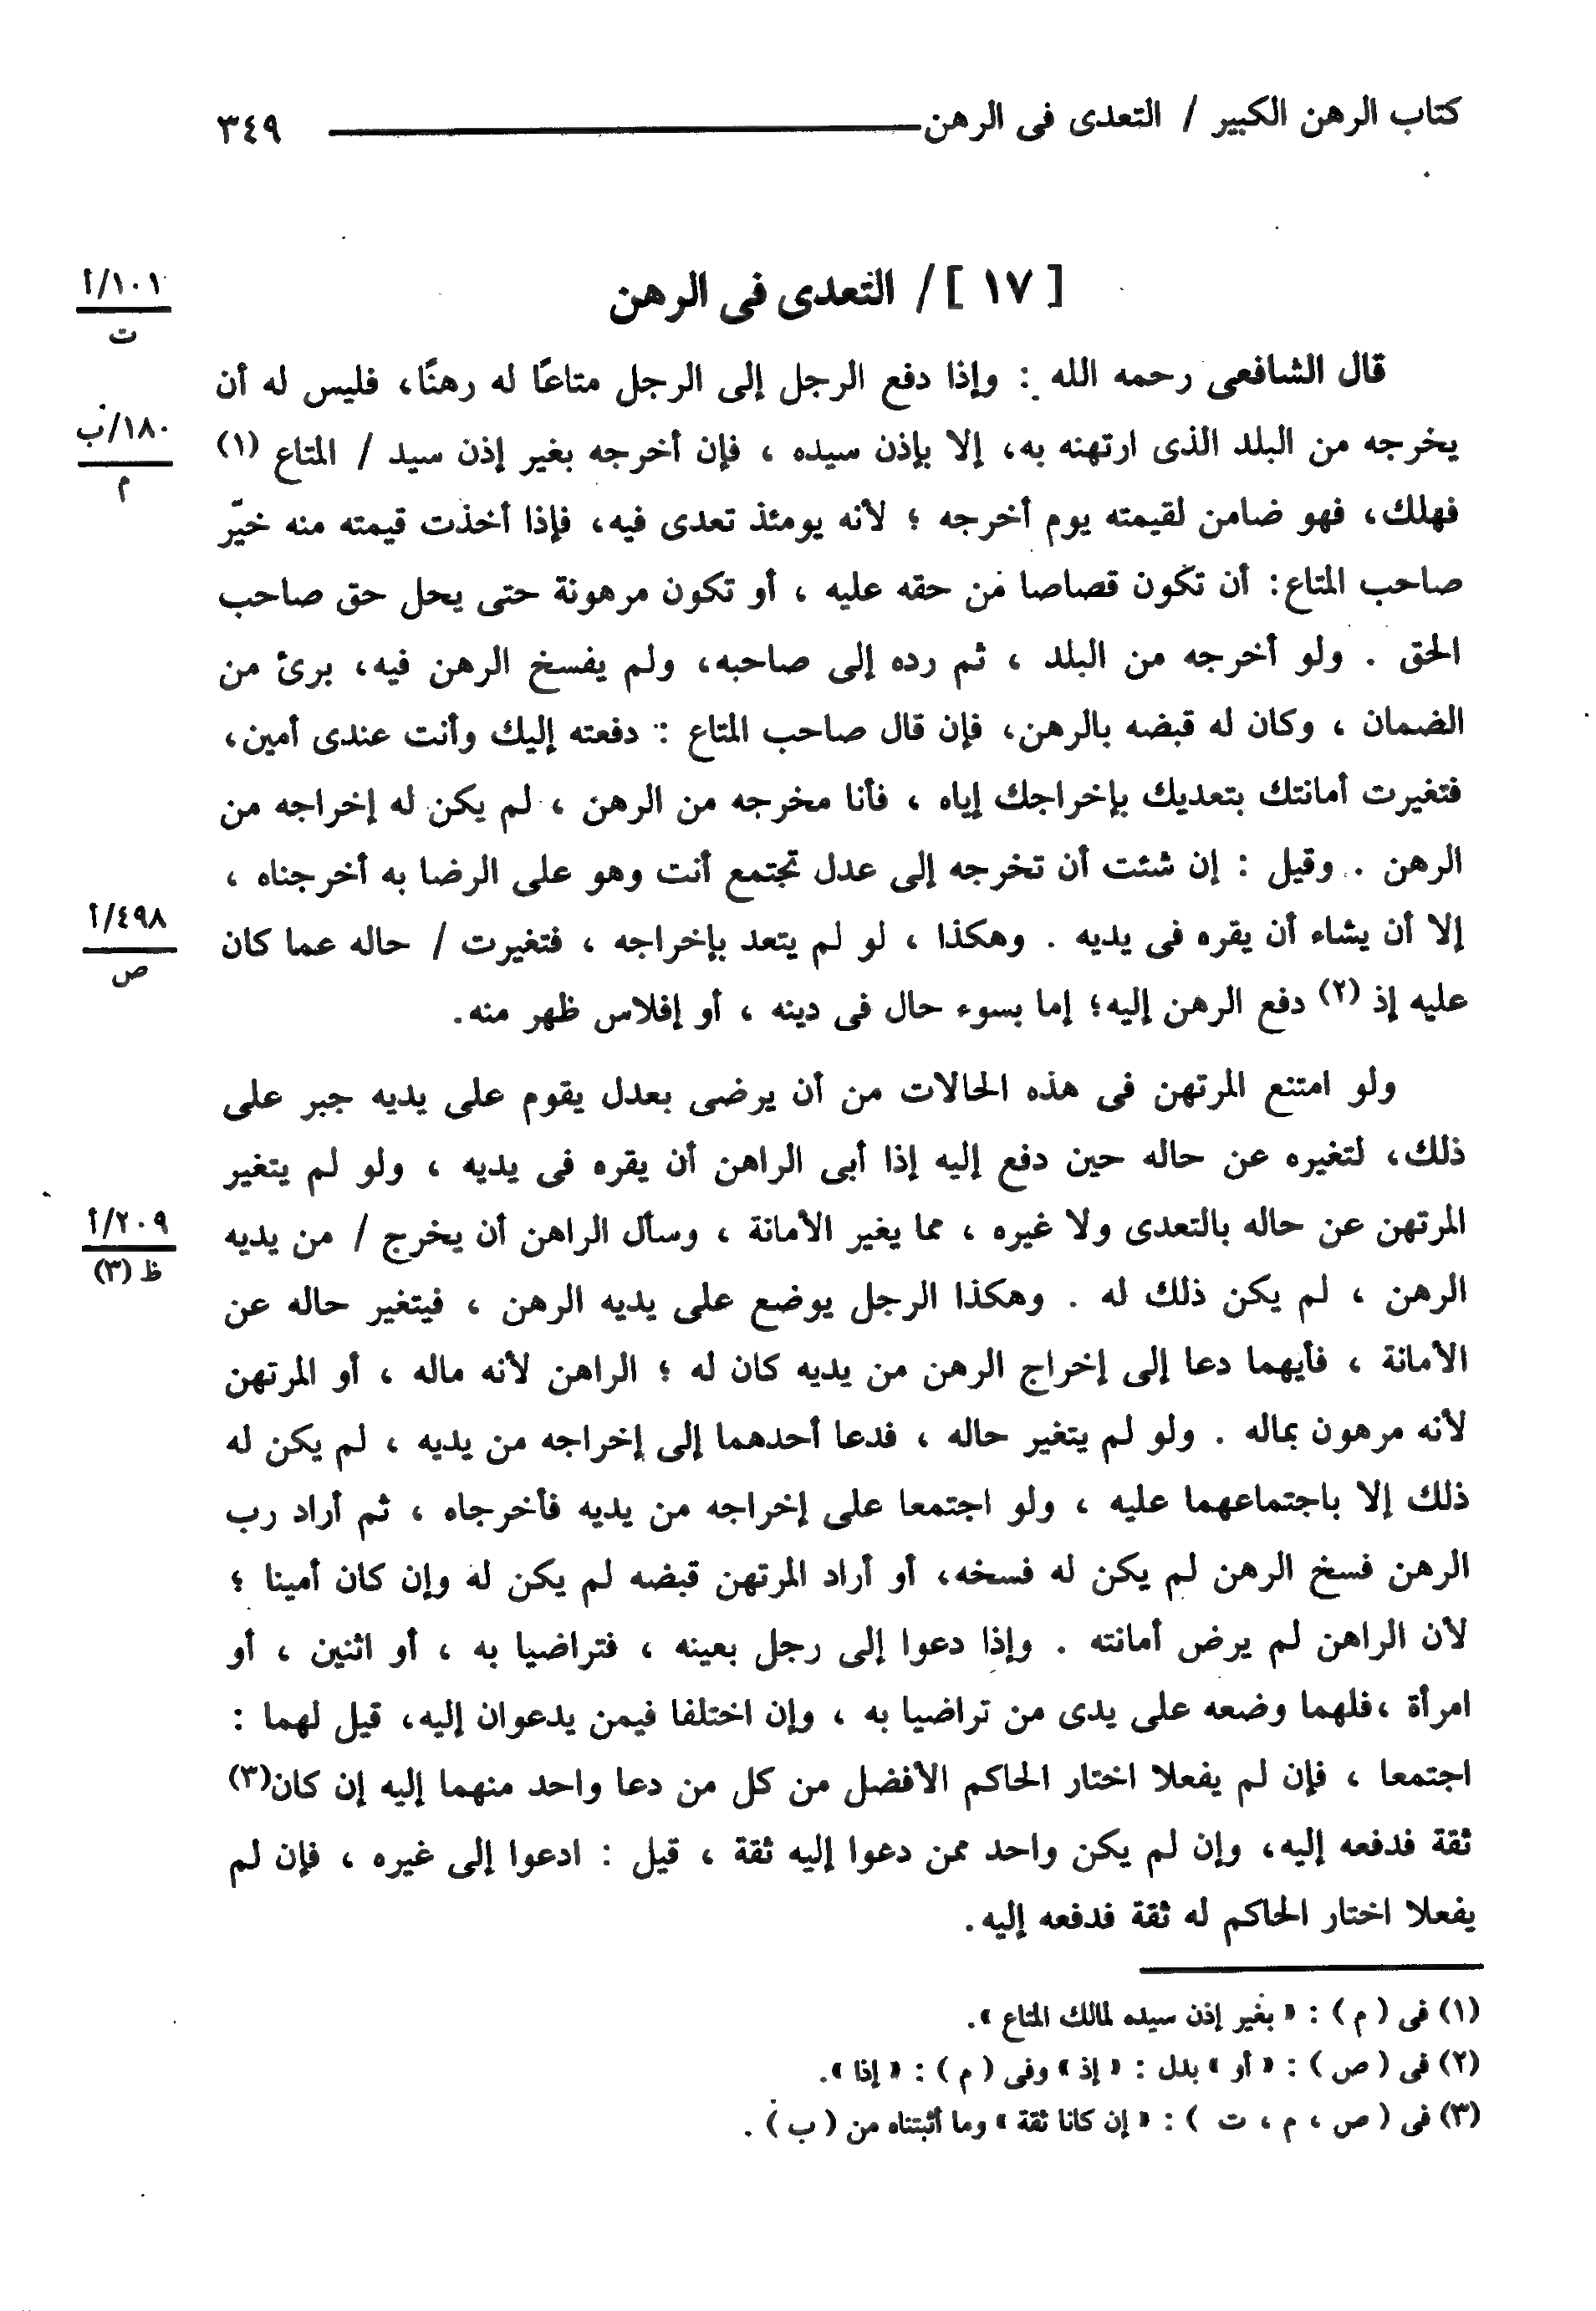 كتاب الرهن الكبير / التعدى فى الرهن ٣٤٩
[ ١٧ ] / التعدى فى الرهن
١٠١/أ
ت
قال الشافعى رحمه الله : وإذا دفع الرجل إلى الرجل متاعًا له رهنًا، فليس له أن
يخرجه من البلد الذى ارتهنه به، إلا بإذن سيده ، فإن أخرجه بغير إذن سيد / المتاع (١)
١٨٠/ب
م
فهلك، فهو ضامن لقيمته يوم أخرجه ؛ لأنه يومئذ تعدى فيه، فإذا أخذت قيمته منه خيّر
صاحب المتاع: أن تكون قصاصا من حقه عليه ، أو تكون مرهونة حتى يحل حق صاحب
الحق . ولو أخرجه من البلد ، ثم رده إلى صاحبه، ولم يفسخ الرهن فيه، برئ من
الضمان ، وكان له قبضه بالرهن، فإن قال صاحب المتاع : دفعته إليك وأنت عندى أمين،
فتغيرت أمانتك بتعديك بإخراجك إياه ، فأنا مخرجه من الرهن ، لم يكن له إخراجه من
الرهن . وقيل : إن شئت أن تخرجه إلى عدل تجتمع أنت وهو على الرضا به أخرجناه ،
إلا أن يشاء أن يقره فى يديه . وهكذا ، لو لم يتعد بإخراجه ، فتغيرت / حاله عما كان
٤٩٨/أ
ص
عليه إذ (٢) دفع الرهن إليه؛ إما بسوء حال فى دينه ، أو إفلاس ظهر منه.
ولو امتنع المرتهن فى هذه الحالات من أن يرضى بعدل يقوم على يديه جبر على
ذلك، لتغيره عن حاله حين دفع إليه إذا أبى الراهن أن يقره فى يديه ، ولو لم يتغير
المرتهن عن حاله بالتعدى ولا غيره ، مما يغير الأمانة ، وسأل الراهن أن يخرج / من يديه
٢٠٩/أ
ظ (٣)
الرهن ، لم يكن ذلك له . وهكذا الرجل يوضع على يديه الرهن ، فيتغير حاله عن
الأمانة ، فأيهما دعا إلى إخراج الرهن من يديه كان له ؛ الراهن لأنه ماله ، أو المرتهن
لأنه مرهون بماله . ولو لم يتغير حاله ، فدعا أحدهما إلى إخراجه من يديه ، لم يكن له
ذلك إلا باجتماعهما عليه ، ولو اجتمعا على إخراجه من يديه فأخرجاه ، ثم أراد رب
الرهن فسخ الرهن لم يكن له فسخه، أو أراد المرتهن قبضه لم يكن له وإن كان أمينا ؛
لأن الراهن لم يرض أمانته . وإذا دعوا إلى رجل بعينه ، فتراضيا به ، أو اثنين ، أو
امرأة ،فلهما وضعه على يدى من تراضيا به ، وإن اختلفا فيمن يدعوان إليه، قيل لهما :
اجتمعا ، فإن لم يفعلا اختار الحاكم الأفضل من كل من دعا واحد منهما إليه إن كان(٣)
ثقة فدفعه إليه، وإن لم يكن واحد ممن دعوا إليه ثقة ، قيل : ادعوا إلى غيره ، فإن لم
يفعلا اختار الحاكم له ثقة فدفعه إليه.
(١) فى ( م ) : « بغير إذن سيده لمالك المتاع ».
(٢) فى ( ص ) : « أو » بدل : « إذ » وفى ( م ) : « إذا ».
(٣) فى ( ص ، م ، ت ) : « إن كانا ثقة » وما أثبتناه من ( ب ) .